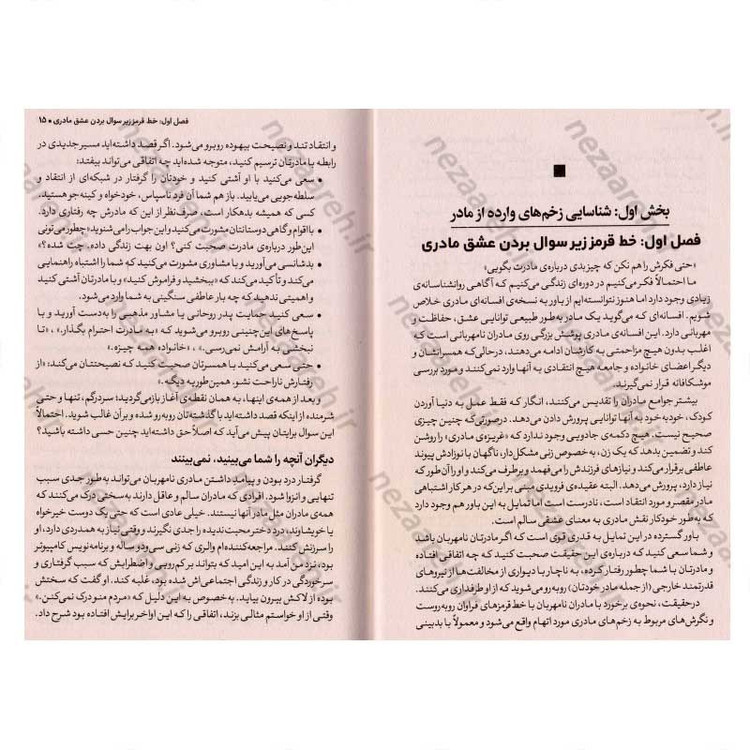 بخش اول: شناسایی زخم‌های وارده از مادر
فصل اول: خط قرمز زیر سوال بردن عشق مادری
«حتی فکرش را هم نکن که چیز بدی درباره‌ی مادرت بگویی»
ما احتمالاً فکر می‌کنیم در دوره‌ای زندگی می‌کنیم که آگاهی روانشناسانه‌ی
زیادی وجود دارد اما هنوز نتوانسته‌ایم از باور به نسخه‌ی افسانه‌ای مادری خلاص
شویم. افسانه‌ای که می‌گوید یک مادر به‌طور طبیعی توانایی عشق، حفاظت و
مهربانی دارد. این افسانه‌ی مادری پوشش بزرگی روی مادران نامهربانی است که
اغلب بدون هیچ مزاحمتی به کارشان ادامه می‌دهند، درحالی‌که همسرانشان و
دیگر اعضای خانواده و جامعه هیچ انتقادی به آنها وارد نمی‌کنند و مورد بررسی
موشکافانه قرار نمی‌گیرند.
بیشتر جوامع مادران را تقدیس می‌کنند، انگار که فقط عمل به دنیا آوردن
کودک، خودبه‌خود به آنها توانایی پرورش دادن می‌دهد. درصورتی‌که چنین چیزی
صحیح نیست. هیچ دکمه‌ی جادویی وجود ندارد که «غریزه‌ی مادری» را روشن
کند و تضمین بدهد که یک زن، به‌خصوص زنی مشکل‌دار، ناگهان با نوزادش پیوند
عاطفی برقرار می‌کند و نیازهای فرزندش را می‌فهمد و برطرف می‌کند و او را آن‌طور که
نیاز دارد، پرورش می‌دهد. البته عقیده‌ی فرویدی مبنی بر این‌که در هر کار اشتباهی
مادر مقصر و مورد انتقاد است، نادرست است اما تمایل به این باور هم وجود دارد
که به‌طور خودکار نقش مادری به معنای عشقی سالم است.
باور گسترده در این تمایل به قدری قوی است که اگر مادرتان نامهربان باشد
و شما سعی کنید که درباره‌ی این حقیقت صحبت کنید که چه اتفاقی افتاده
و مادرتان با شما چطور رفتار کرده، به ناچار با دیواری از مخالفت‌ها از نیروهای
قدرتمند خارجی (از جمله مادر خودتان) روبه‌رو می‌شوید که از او طرفداری می‌کنند.
درحقیقت، نحوه‌ی برخورد با مادران نامهربان با خط قرمزهای فراوان روبه‌روست
و نگرش‌های مربوط به زخم‌های مادری مورد اتهام واقع می‌شود و معمولاً با بدبینی
فصل اول: خط قرمز زیر سوال بردن عشق مادری ● ۱۵
و انتقاد تند و نصیحت بیهوده روبرو می‌شود. اگر قصد داشته‌اید مسیر جدیدی در
رابطه با مادرتان ترسیم کنید، متوجه شده‌اید چه اتفاقی می‌تواند بیفتد:
● سعی می‌کنید با او آشتی کنید و خودتان را گرفتار در شبکه‌ای از انتقاد و
سلطه‌جویی می‌یابید. باز هم شما آن فرد ناسپاس، خودخواه و کینه‌جو هستید.
کسی که همیشه بدهکار است، صرف‌نظر از این که مادرش چه رفتاری دارد.
● با اقوام و گاهی دوستانتان مشورت می‌کنید و این جواب را می‌شنوید: «چطور می‌تونی
این‌طور درباره‌ی مادرت صحبت کنی؟ اون بهت زندگی داده. چت شده؟»
● بدشانسی می‌آورید و با مشاوری مشورت می‌کنید که شما را اشتباه راهنمایی
می‌کند و تأکید می‌کند که «ببخشید و فراموش کنید» و با مادرتان آشتی کنید
و اهمیتی ندهید که چه بار عاطفی سنگینی به شما وارد می‌شود.
● سعی می‌کنید حمایت پدر روحانی یا مشاور مذهبی را به‌دست آورید و با
پاسخ‌های این‌چنینی روبرو می‌شوید که «به مادرت احترام بگذار.»، «تا
نبخشی به آرامش نمی‌رسی.»، «خانواده همه چیزه.»
● حتی سعی می‌کنید با همسرتان صحبت کنید که نصیحتتان می‌کند: «از
رفتارش ناراحت نشو، همین‌طوریه دیگه.»
و بعد از همه‌ی اینها، به همان نقطه‌ی آغاز بازمی‌گردید؛ سردرگم، تنها و حتی
شرمنده از اینکه قصد داشته‌اید با گذشته‌تان روبه‌رو شده و بر آن غالب شوید. احتمالاً
این سوال برایتان پیش می‌آید که اصلاً حق داشته‌اید چنین حسی داشته باشید؟
دیگران آنچه را شما می‌بینید، نمی‌بینند
گرفتار درد بودن و پیامد داشتن مادری نامهربان می‌تواند به‌طور جدی سبب
تنهایی و انزوا شود. افرادی که مادران سالم و عاقل دارند به‌سختی درک می‌کنند که
همه‌ی مادران مثل مادر آنها نیستند. خیلی عادی است که حتی یک دوست خیرخواه
یا خویشاوند، درد دختر محبت‌ندیده را جدی نگیرند و وقتی نیاز به همدردی دارد، او
را سرزنش کنند. مراجعه‌کننده‌ام والری که زنی سی‌ودو ساله و برنامه‌نویس کامپیوتر
بود، نزد من آمد به این امید که بتواند بر کم‌رویی و اضطرابش که سبب گرفتاری و
سرخوردگی در کار و زندگی اجتماعی‌اش شده بود، غلبه کند. او گفت که سختش
بوده از لاکش بیرون بیاید. به‌خصوص به این دلیل که «مردم منو درک نمی‌کنن.»
وقتی از او خواستم مثالی بزند، اتفاقی را که این اواخر برایش افتاده بود شرح داد.
nezaareh.ir
nezaareh.ir
nezaareh.ir
nezaareh.ir